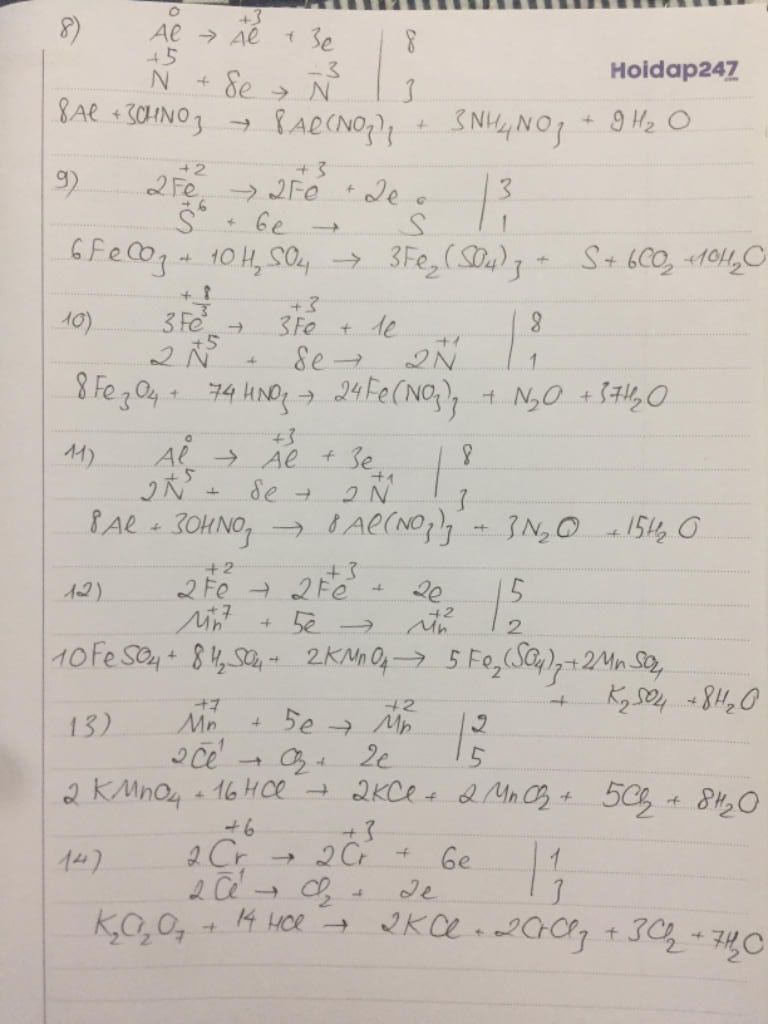 Hoidap247
.com
8) Al⁰ → Al⁺³ + 3e | 8
N⁺⁵ + 8e → N⁻³ | 3
8Al + 30HNO₃ → 8Al(NO₃)₃ + 3NH₄NO₃ + 9H₂O
9) 2Fe⁺² → 2Fe⁺³ + 2e | 3
S⁺⁶ + 6e → S⁰ | 1
6FeCO₃ + 10H₂SO₄ → 3Fe₂(SO₄)₃ + S + 6CO₂ + 10H₂O
10) 3Fe⁺⁸⁄³ → 3Fe⁺³ + 1e | 8
2N⁺⁵ + 8e → 2N⁺¹ | 1
8Fe₃O₄ + 74HNO₃ → 24Fe(NO₃)₃ + N₂O + 37H₂O
11) Al⁰ → Al⁺³ + 3e | 8
2N⁺⁵ + 8e → 2N⁺¹ | 3
8Al + 30HNO₃ → 8Al(NO₃)₃ + 3N₂O + 15H₂O
12) 2Fe⁺² → 2Fe⁺³ + 2e | 5
Mn⁺⁷ + 5e → Mn⁺² | 2
10FeSO₄ + 8H₂SO₄ + 2KMnO₄ → 5Fe₂(SO₄)₃ + 2MnSO₄
+ K₂SO₄ + 8H₂O
13) Mn⁺⁷ + 5e → Mn⁺² | 2
2Cl⁻¹ → Cl₂ + 2e | 5
2KMnO₄ + 16HCl → 2KCl + 2MnCl₂ + 5Cl₂ + 8H₂O
14) 2Cr⁺⁶ → 2Cr⁺³ + 6e | 1
2Cl⁻¹ → Cl₂ + 2e | 3
K₂Cr₂O₇ + 14HCl → 2KCl + 2CrCl₃ + 3Cl₂ + 7H₂O